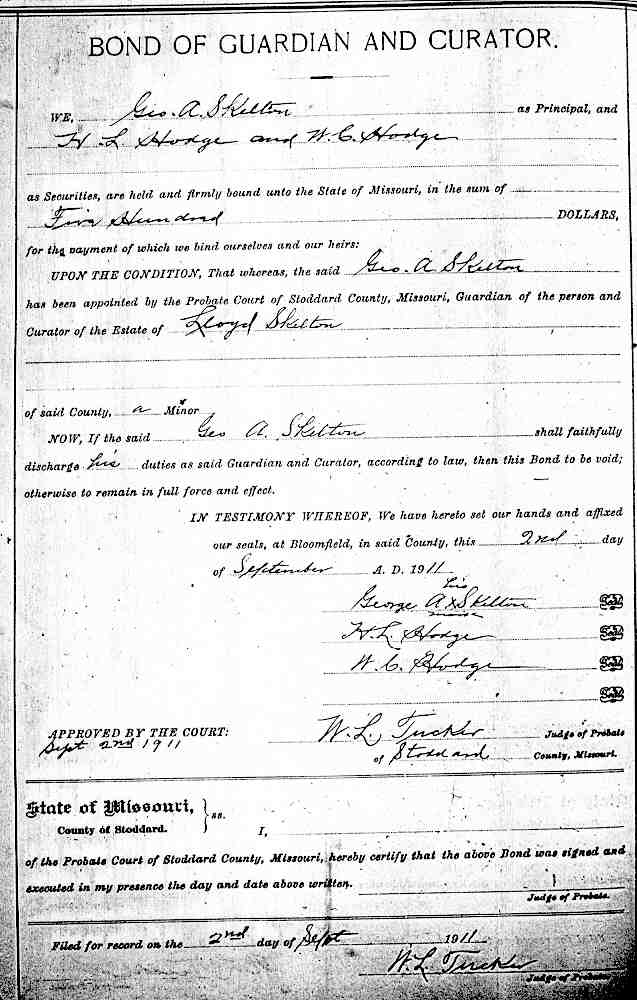 BOND OF GUARDIAN AND CURATOR.
WE, Geo. A. Skelton as Principal, and
H. L. Hodge and W. C. Hodge
as Securities, are held and firmly bound unto the State of Missouri, in the sum of
Five Hundred DOLLARS,
for the payment of which we bind ourselves and our heirs:
UPON THE CONDITION, That whereas, the said Geo. A Skelton
has been appointed by the Probate Court of Stoddard County, Missouri, Guardian of the person and
Curator of the Estate of Lloyd Skelton
of said County, a Minor
NOW, If the said Geo A. Skelton shall faithfully
discharge his duties as said Guardian and Curator, according to law, then this Bond to be void;
otherwise to remain in full force and effect.
IN TESTIMONY WHEREOF, We have hereto set our hands and affixed
our seals, at Bloomfield, in said County, this 2nd day
of September A. D. 1911
his
George A x Skelton Seal
mark
H. L. Hodge Seal
W. C. Hodge Seal
Seal
APPROVED BY THE COURT: W. L. Tucker Judge of Probate
Sept 2nd 1911 of Stoddard County, Missouri.
State of Missouri, } ss.
County of Stoddard. I,
of the Probate Court of Stoddard County, Missouri, hereby certify that the above Bond was signed and
executed in my presence the day and date above written.
Judge of Probate.
Filed for record on the 2nd day of Sept 1911
W. L. Tucker
Judge of Probate.